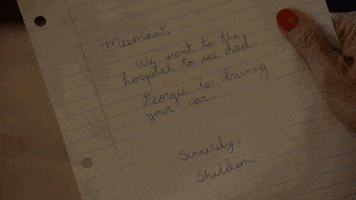 Meemaw,
We went to the
hospital to see dad.
Georgie is driving
your car.
Sincerely,
Sheldon